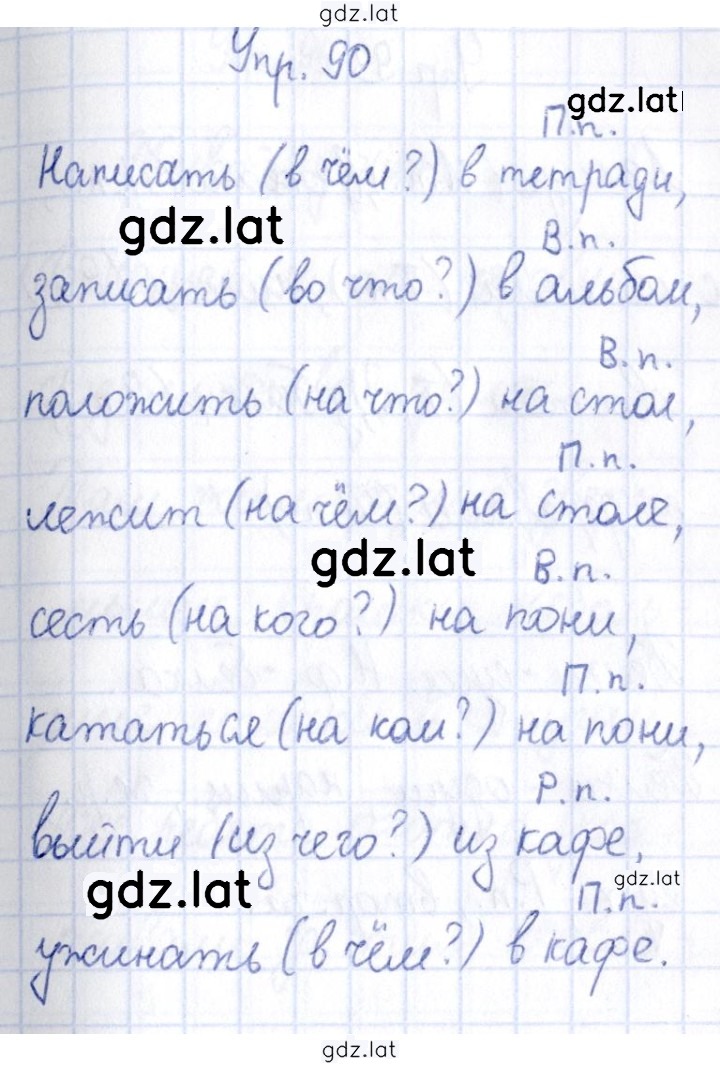 gdz.lat
Упр. 90
gdz.lat
П.п.
Написать (в чём?) в тетради,
gdz.lat
В.п.
записать (во что?) в альбом,
В.п.
положить (на что?) на стол,
П.п.
лежит (на чём?) на столе,
gdz.lat
В.п.
сесть (на кого?) на пони,
П.п.
кататься (на ком?) на пони,
Р.п.
выйти (из чего?) из кафе,
gdz.lat
gdz.lat
П.п.
ужинать (в чём?) в кафе.
gdz.lat